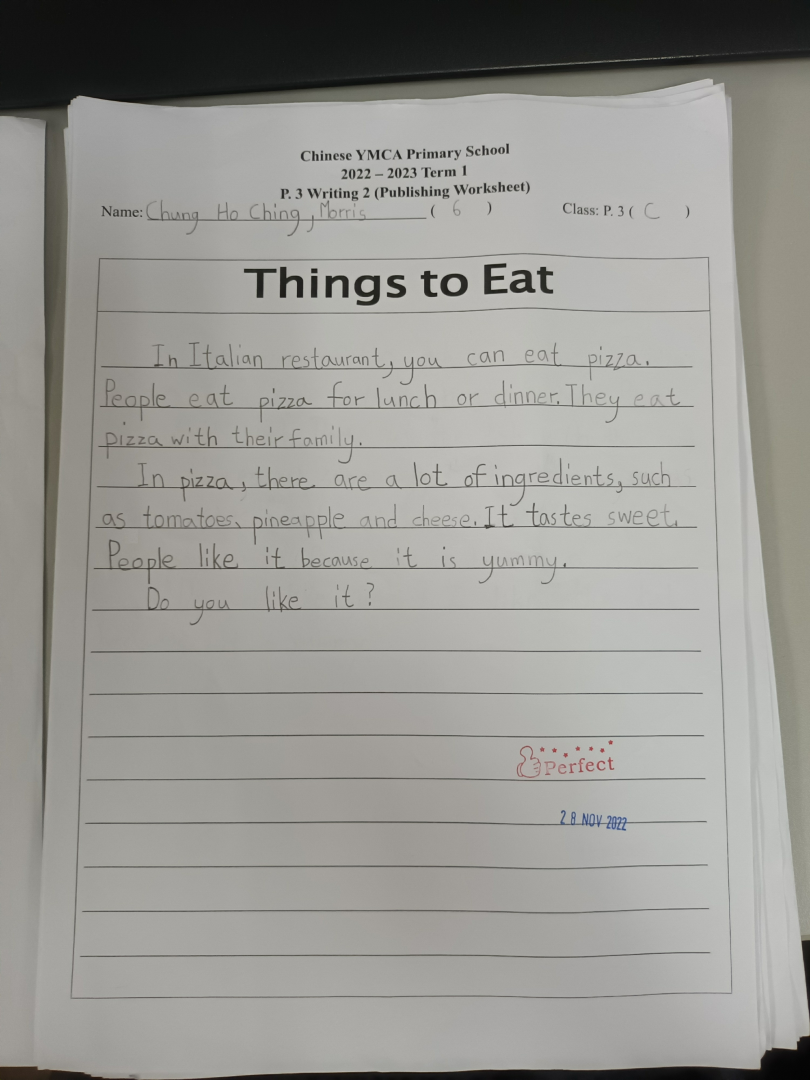 Chinese YMCA Primary School
2022 – 2023 Term 1
P. 3 Writing 2 (Publishing Worksheet)
Name: Chung Ho Ching, Morris ( 6 ) Class: P. 3 ( C )
Things to Eat
In Italian restaurant, you can eat pizza.
People eat pizza for lunch or dinner. They eat
pizza with their family.
In pizza, there are a lot of ingredients, such
as tomatoes、pineapple and cheese. It tastes sweet.
People like it because it is yummy.
Do you like it?
Perfect
28 NOV 2022